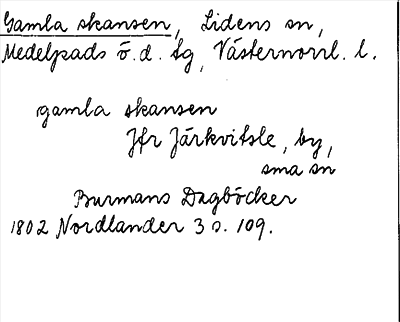 Gamla skansen, Lidens sn,
Medelpads ö.d. tg, Västernorrl. l.
gamla skansen
Jfr Järkvitsle, by,
sma sn
Burmans Dagböcker
1802 Nordlander 3 s. 109.